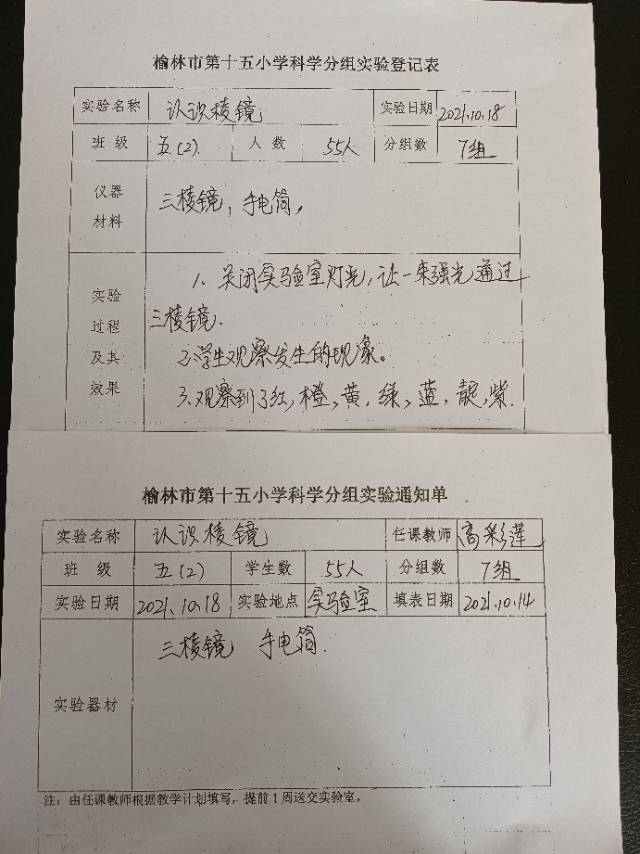 榆林市第十五小学科学分组实验登记表
实验名称 认识棱镜 实验日期 2021.10.18
班 级 五(2) 人 数 55人 分组数 7组
仪器
材料
三棱镜，手电筒，
实验
过程
及其
效果
1、关闭实验室灯光，让一束强光通过
三棱镜.
2.学生观察发生的现象。
3.观察到了红，橙，黄，绿，蓝，靛，紫.
榆林市第十五小学科学分组实验通知单
实验名称 认识棱镜 任课教师 高彩莲
班 级 五(2) 学生数 55人 分组数 7组
实验日期 2021.10.18 实验地点 实验室 填表日期 2021.10.14
实验器材 三棱镜 手电筒.
注：由任课教师根据教学计划填写，提前1周送交实验室。